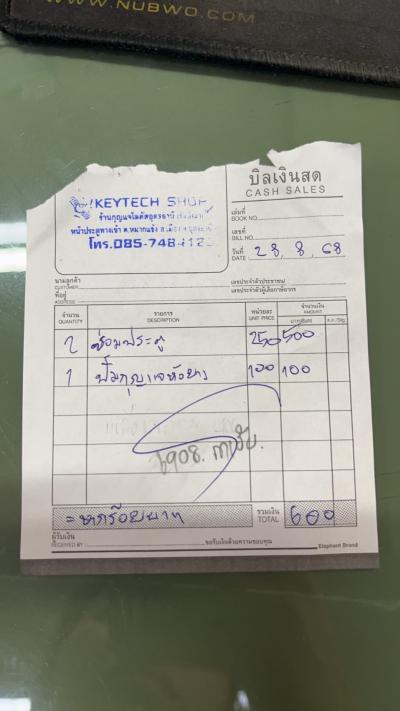 WWW.NUBWO.COM
บิลเงินสด
CASH SALES
KEYTECH SHOP
ร้านกุญแจโมดัฟอุดรธานี
หน้าประตูทางเข้า ต.หมากแข้ง อ.เมือง จ.อุดรธานี
โทร.085-748
เล่มที่
BOOK NO.
เลขที่
BILL NO.
วันที่
DATE 28, 8, 68
นามลูกค้า
CUSTOMER
เลขประจำตัวประชาชน/
ที่อยู่
เลขประจำตัวผู้เสียภาษีอากร
ADDRESS
จำนวน รายการ หน่วยละ จำนวนเงิน
QUANTITY DESCRIPTION UNIT PRICE AMOUNT
บาท/Baht ส.ต./Stg.
2 ซ่อมประตู 250 500
1 ปั๊มกุญแจหัวยาง 100 100
= หกร้อยบาท
รวมเงิน
TOTAL 600
ผู้รับเงิน
RECEIVED BY
ขอรับเงินด้วยความขอบคุณ
Elephant Brand